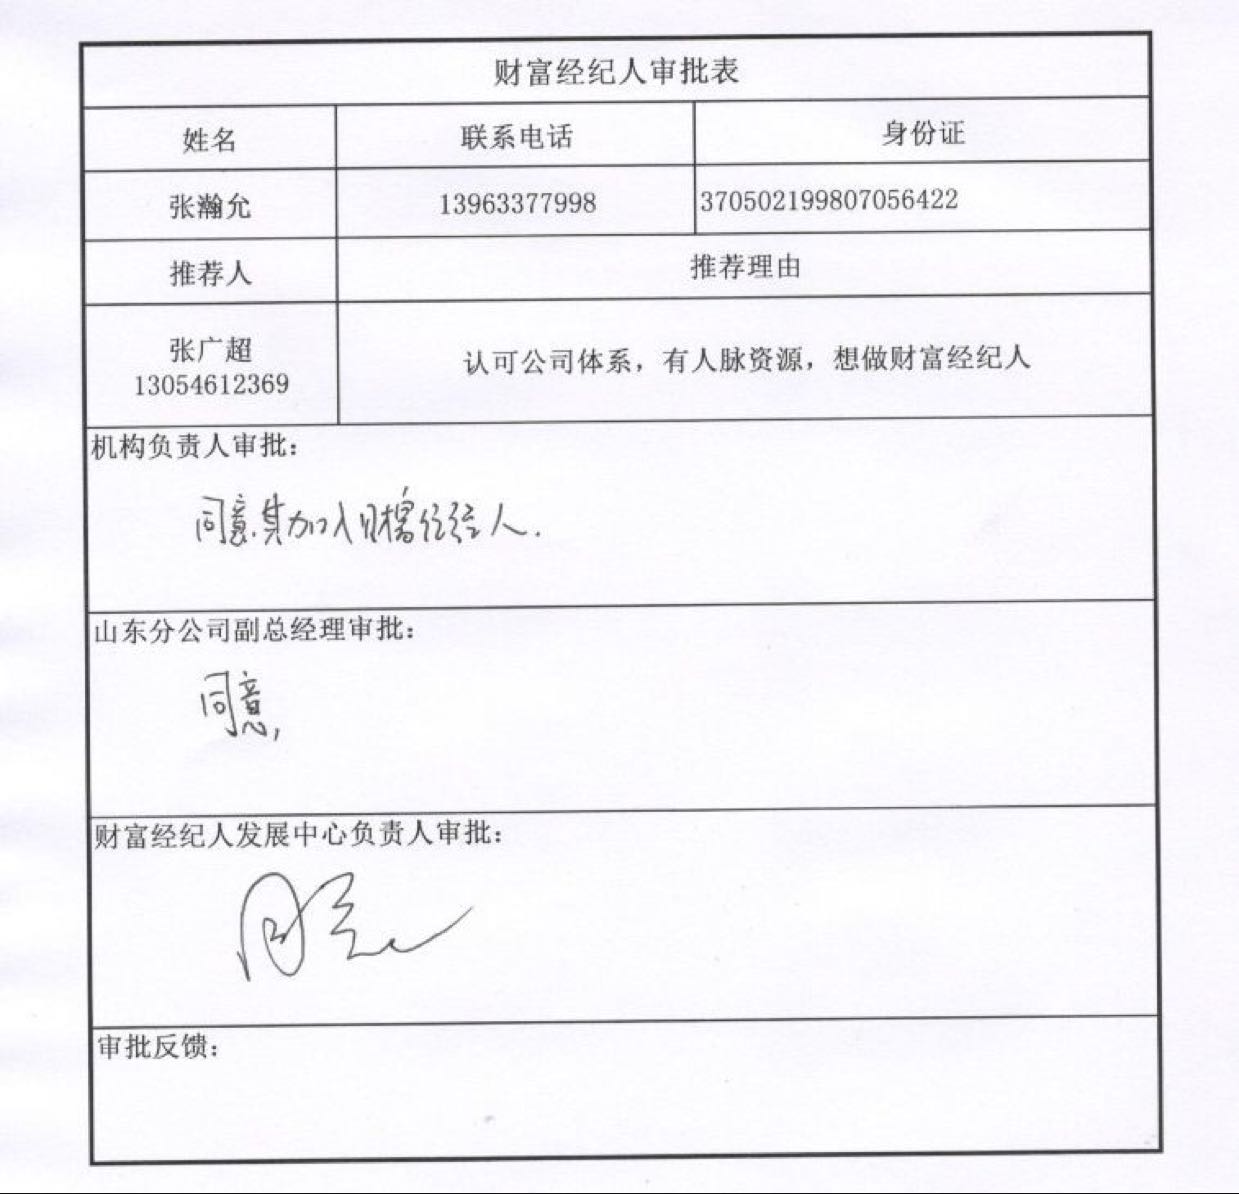 财富经纪人审批表
姓名 联系电话 身份证
张瀚允 13963377998 370502199807056422
推荐人 推荐理由
张广超
13054612369
认可公司体系，有人脉资源，想做财富经纪人
机构负责人审批：
同意其加入财富经纪人.
山东分公司副总经理审批：
同意,
财富经纪人发展中心负责人审批：
同意
审批反馈：